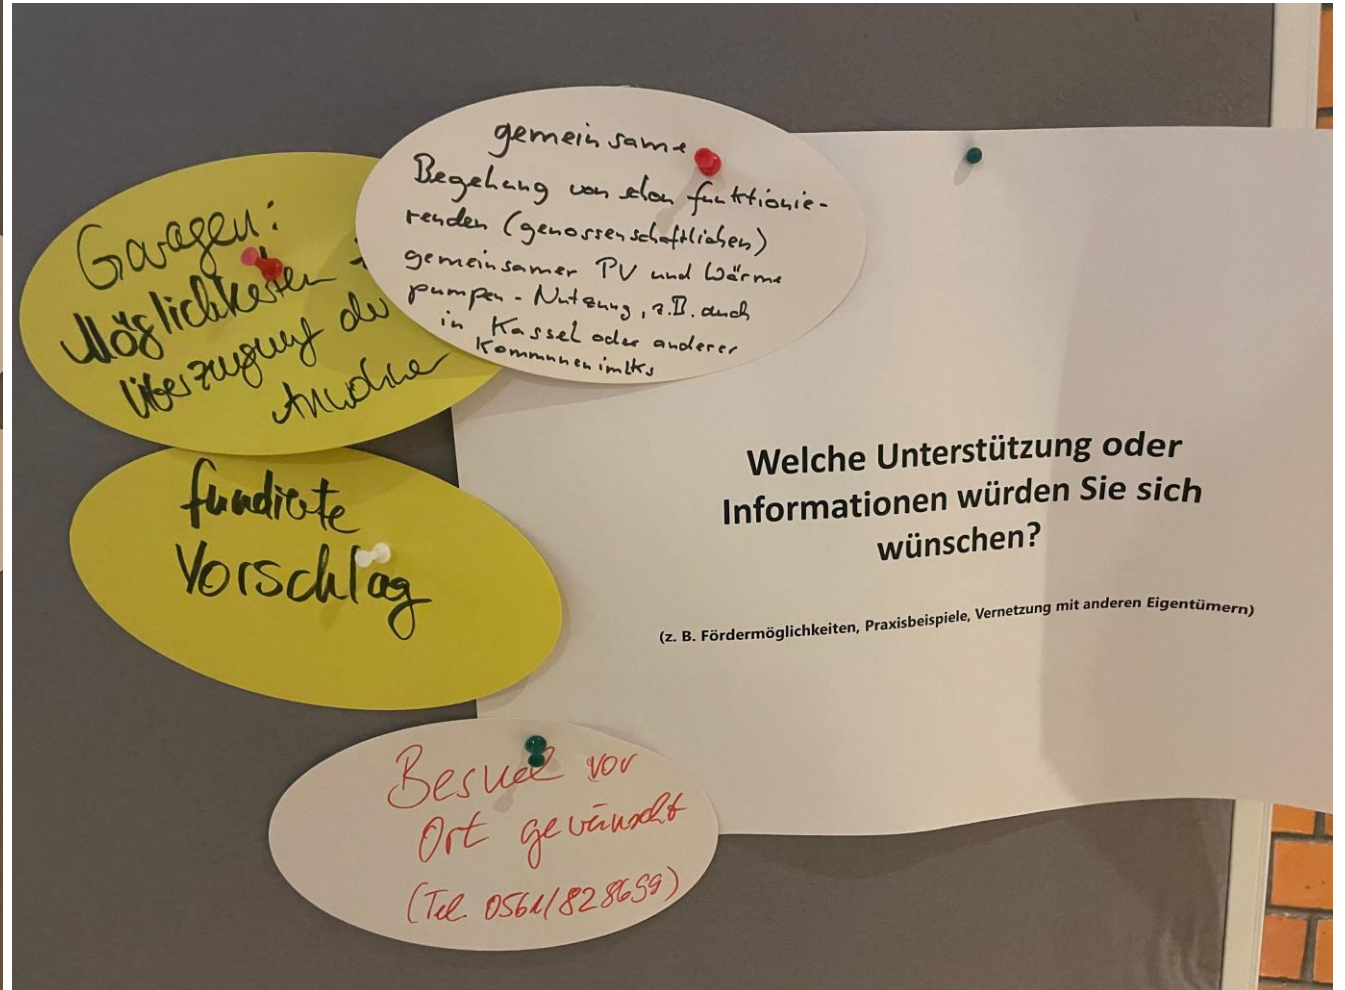 Garagen:
Möglichkeiten
Überzeugung der
Anwohner
gemeinsame
Begehung von schon funktionie-
renden (genossenschaftlichen)
gemeinsamer PV und Wärme
pumpen-Nutzung, z.B. auch
in Kassel oder anderer
Kommunen im LKs
fundierte
Vorschlag
Welche Unterstützung oder
Informationen würden Sie sich
wünschen?
(z. B. Fördermöglichkeiten, Praxisbeispiele, Vernetzung mit anderen Eigentümern)
Besuch vor
Ort gewünscht
(Tel. 0561/828659)